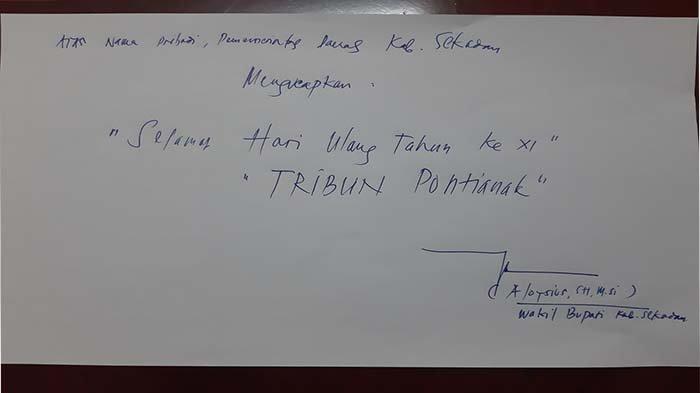 Atas Nama Pribadi, Pemerintah Daerah Kab. Sekadau
Mengucapkan.
"Selamat Hari Ulang Tahun ke XI"
"TRIBUN Pontianak"
(Aloysius, SH, M.Si)
Wakil Bupati Kab. Sekadau